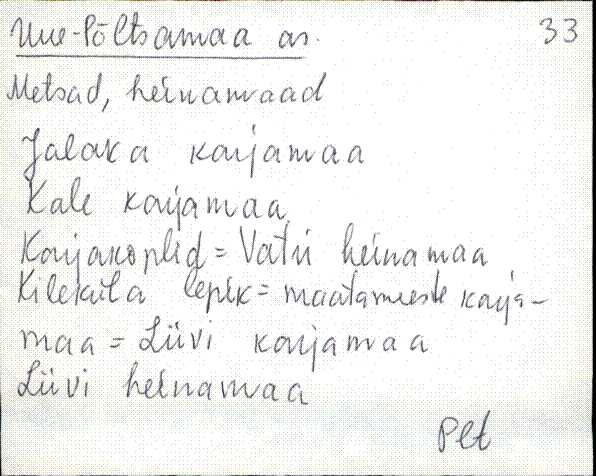 Uue-Põltsamaa as. 33
Metsad, heinamaad
Jalaka karjamaa
Kale karjamaa
Karjakoplid = Vatri heinamaa
Kileküla lepik = maatameeste karja-
maa = Liivi karjamaa
Liivi heinamaa
Plt